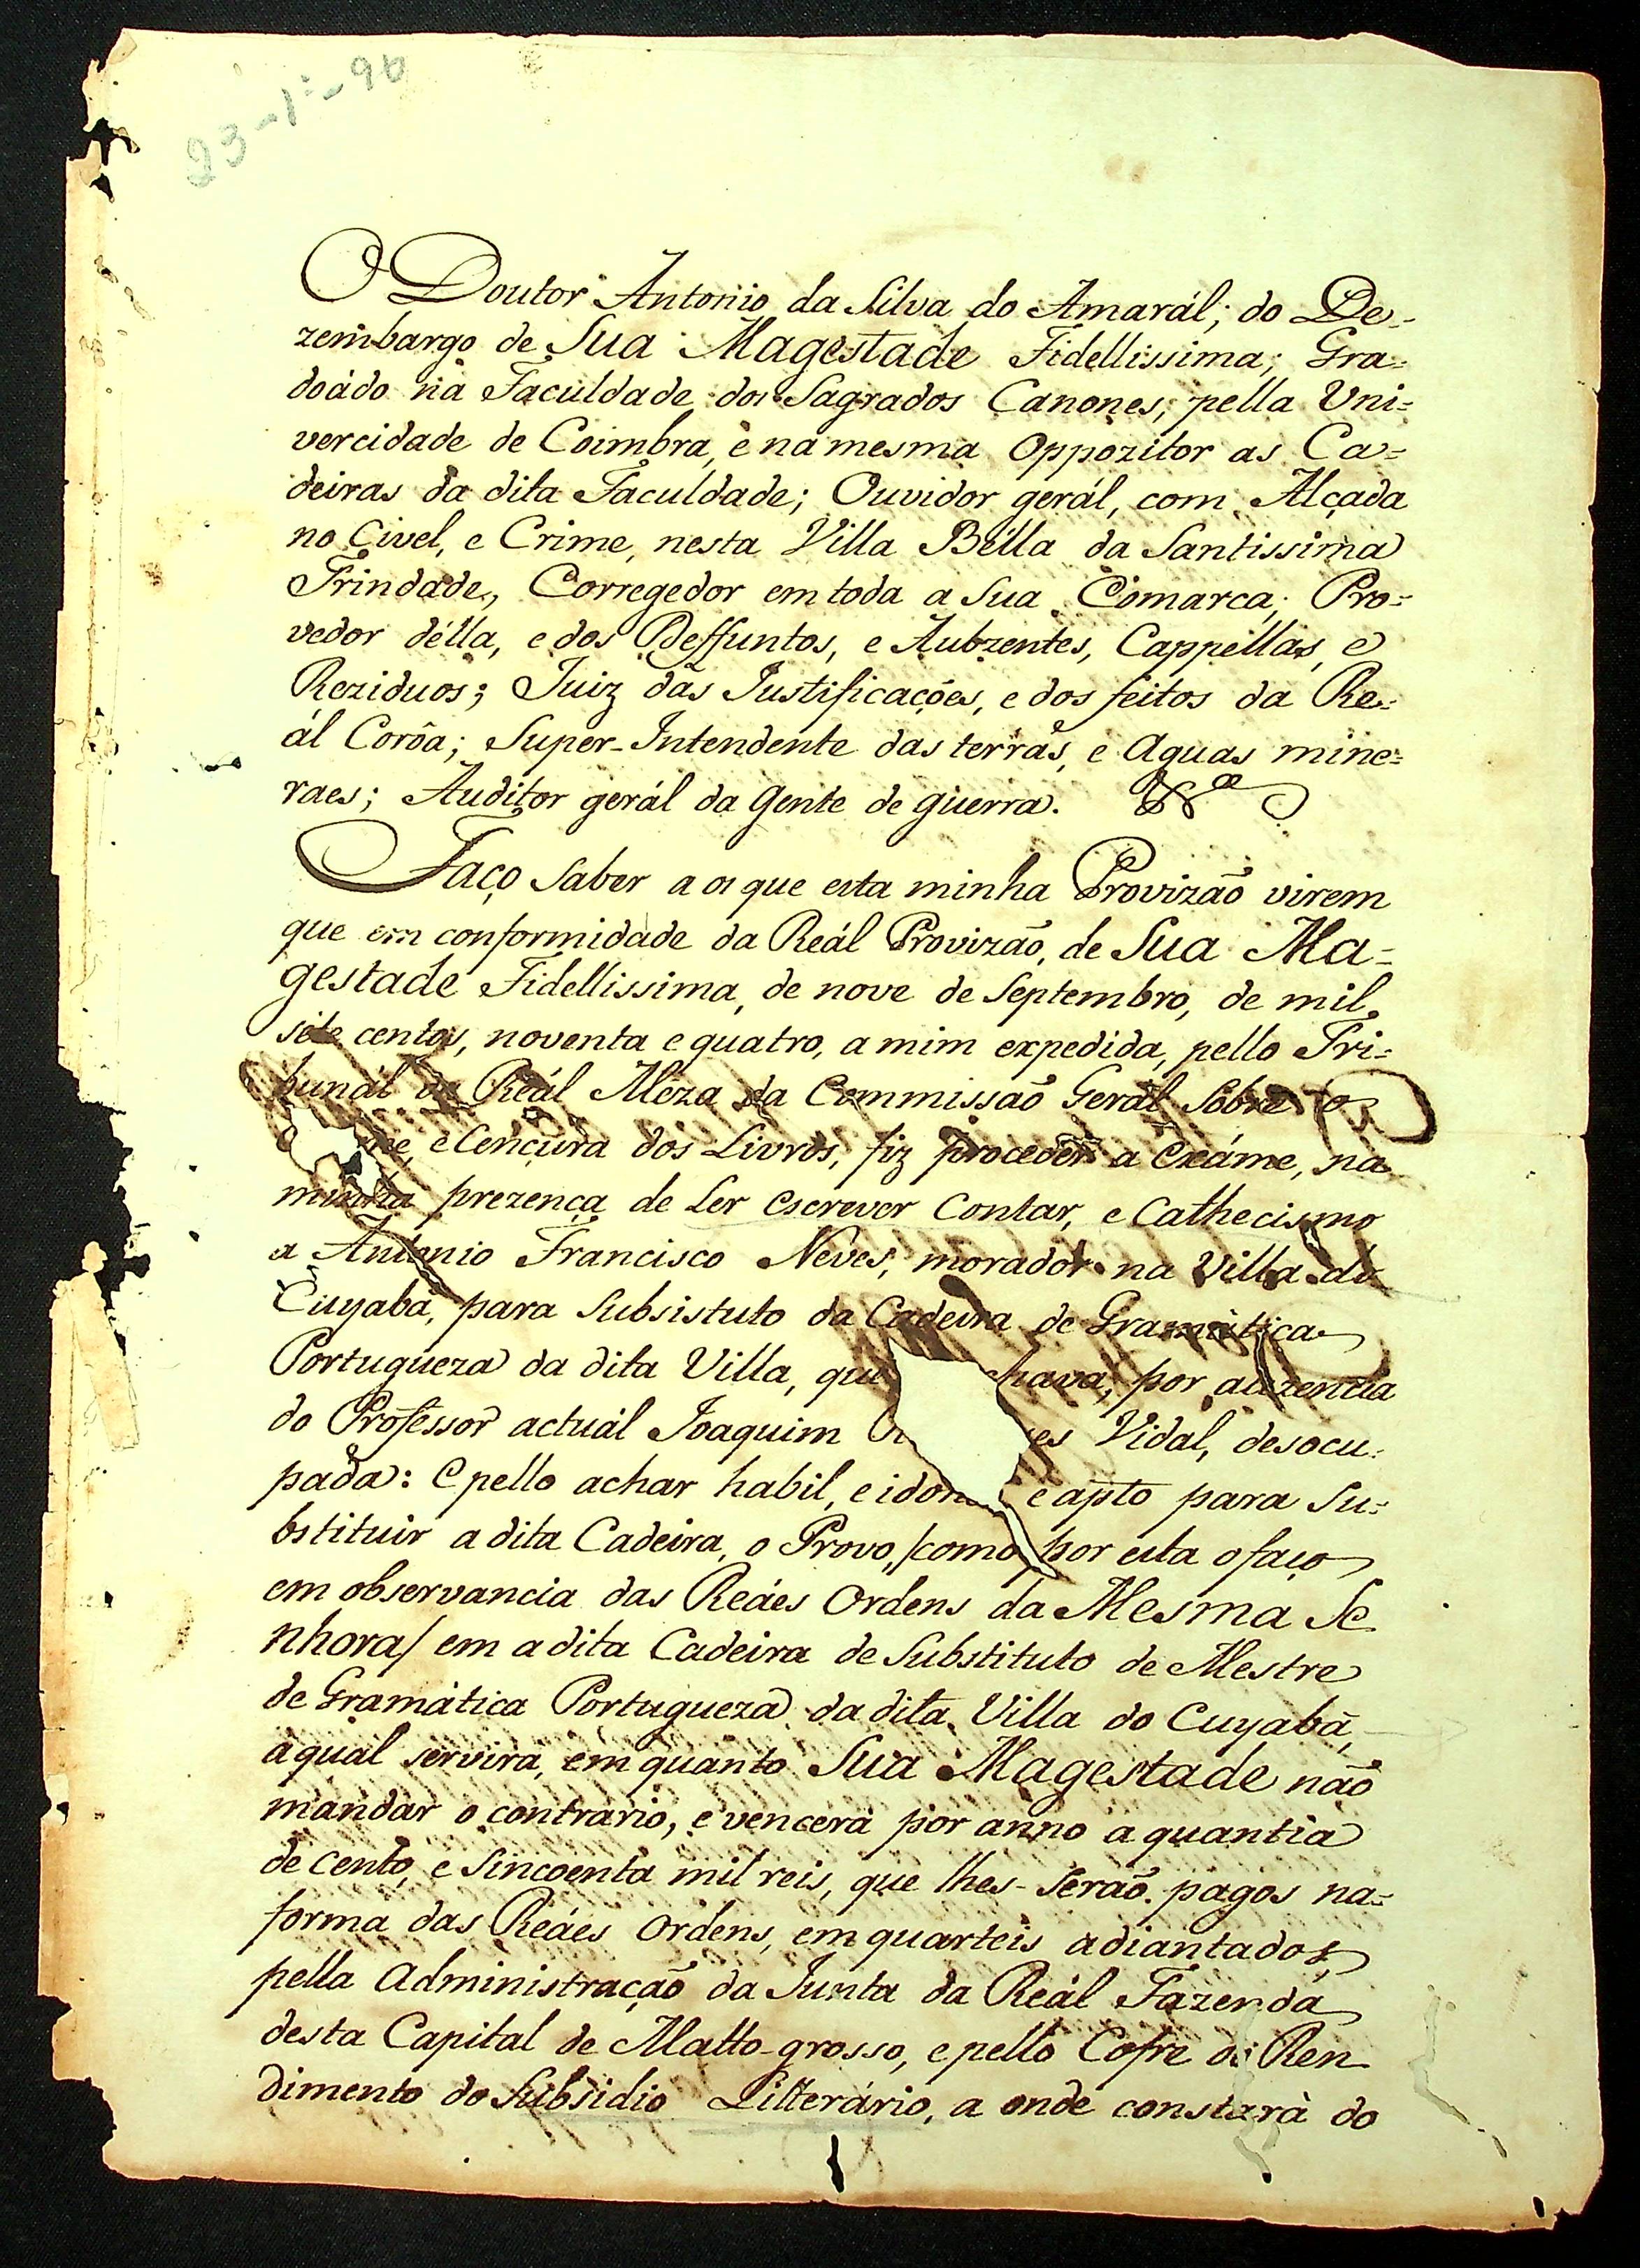 23-1º-96
O Doutor Antonio da Silva do Amarál; do De-
zembargo de Sua Magestade Fidellissima; Gra=
doádo na Faculdade dos Sagrados Canones, pella Uni=
vercidade de Coimbra, e na mesma Oppozitor as Ca=
deiras da dita Faculdade; Ouvidor gerál, com Alçada
no Civel, e Crime, nesta Villa Bélla da Santissima
Trindade, Corregedor em toda a Sua Comarca; Pro=
vedor délla, e dos Deffuntos, e Aubzentes, Cappéllas, e
Reziduos; Juiz das Justificações, e dos feitos da Re=
ál Corôa; Super-Intendente das terras, e Aguas mine=
raes; Auditor gerál da Gente de guerra. &ª
Faço Saber a os que esta minha Provizão virem
que em conformidade da Reál Provizão, de Sua Ma=
gestade Fidellissima, de nove de Septembro, de mil
séte centos, noventa e quatro, a mim expedida, pello Tri=
bunál da Reál Meza da Commissão Gerál Sobre o
me, e Cençura dos Livros, fiz proceder a exáme, na
minha prezença de Ler escrever Contar, e Cathecismo
a Antonio Francisco Neves, morador na Villa do
Cuyabá, para Subsistuto da Cadeira de Gramática
Portugueza da dita Villa, que chava, por auzencia
do Professor actuál Joaquim es Vidal, desocu=
pada: e pello achar habil, e idon e apto para Su=
bstituir a dita Cadeira, o Provo, /como por esta o faço
em observancia das Reáes Ordens da Mesma Se
nhora/ em a dita Cadeira de Substituto de Mestre
de Gramática Portugueza da dita Villa do Cuyabá,
a qual servirá, em quanto Sua Magestade não
mandar o contrario, e vencerá por anno a quantia
de cento, e Sincoenta mil reis, que lhes-Serão pagos na=
forma das Reáes Ordens, em quarteis adiantados,
pella Administração da Junta da Reál Fazenda
desta Capital de Matto-grosso, e pello Cofre do Ren
dimento do Subsidio Litterário, a onde constarà do